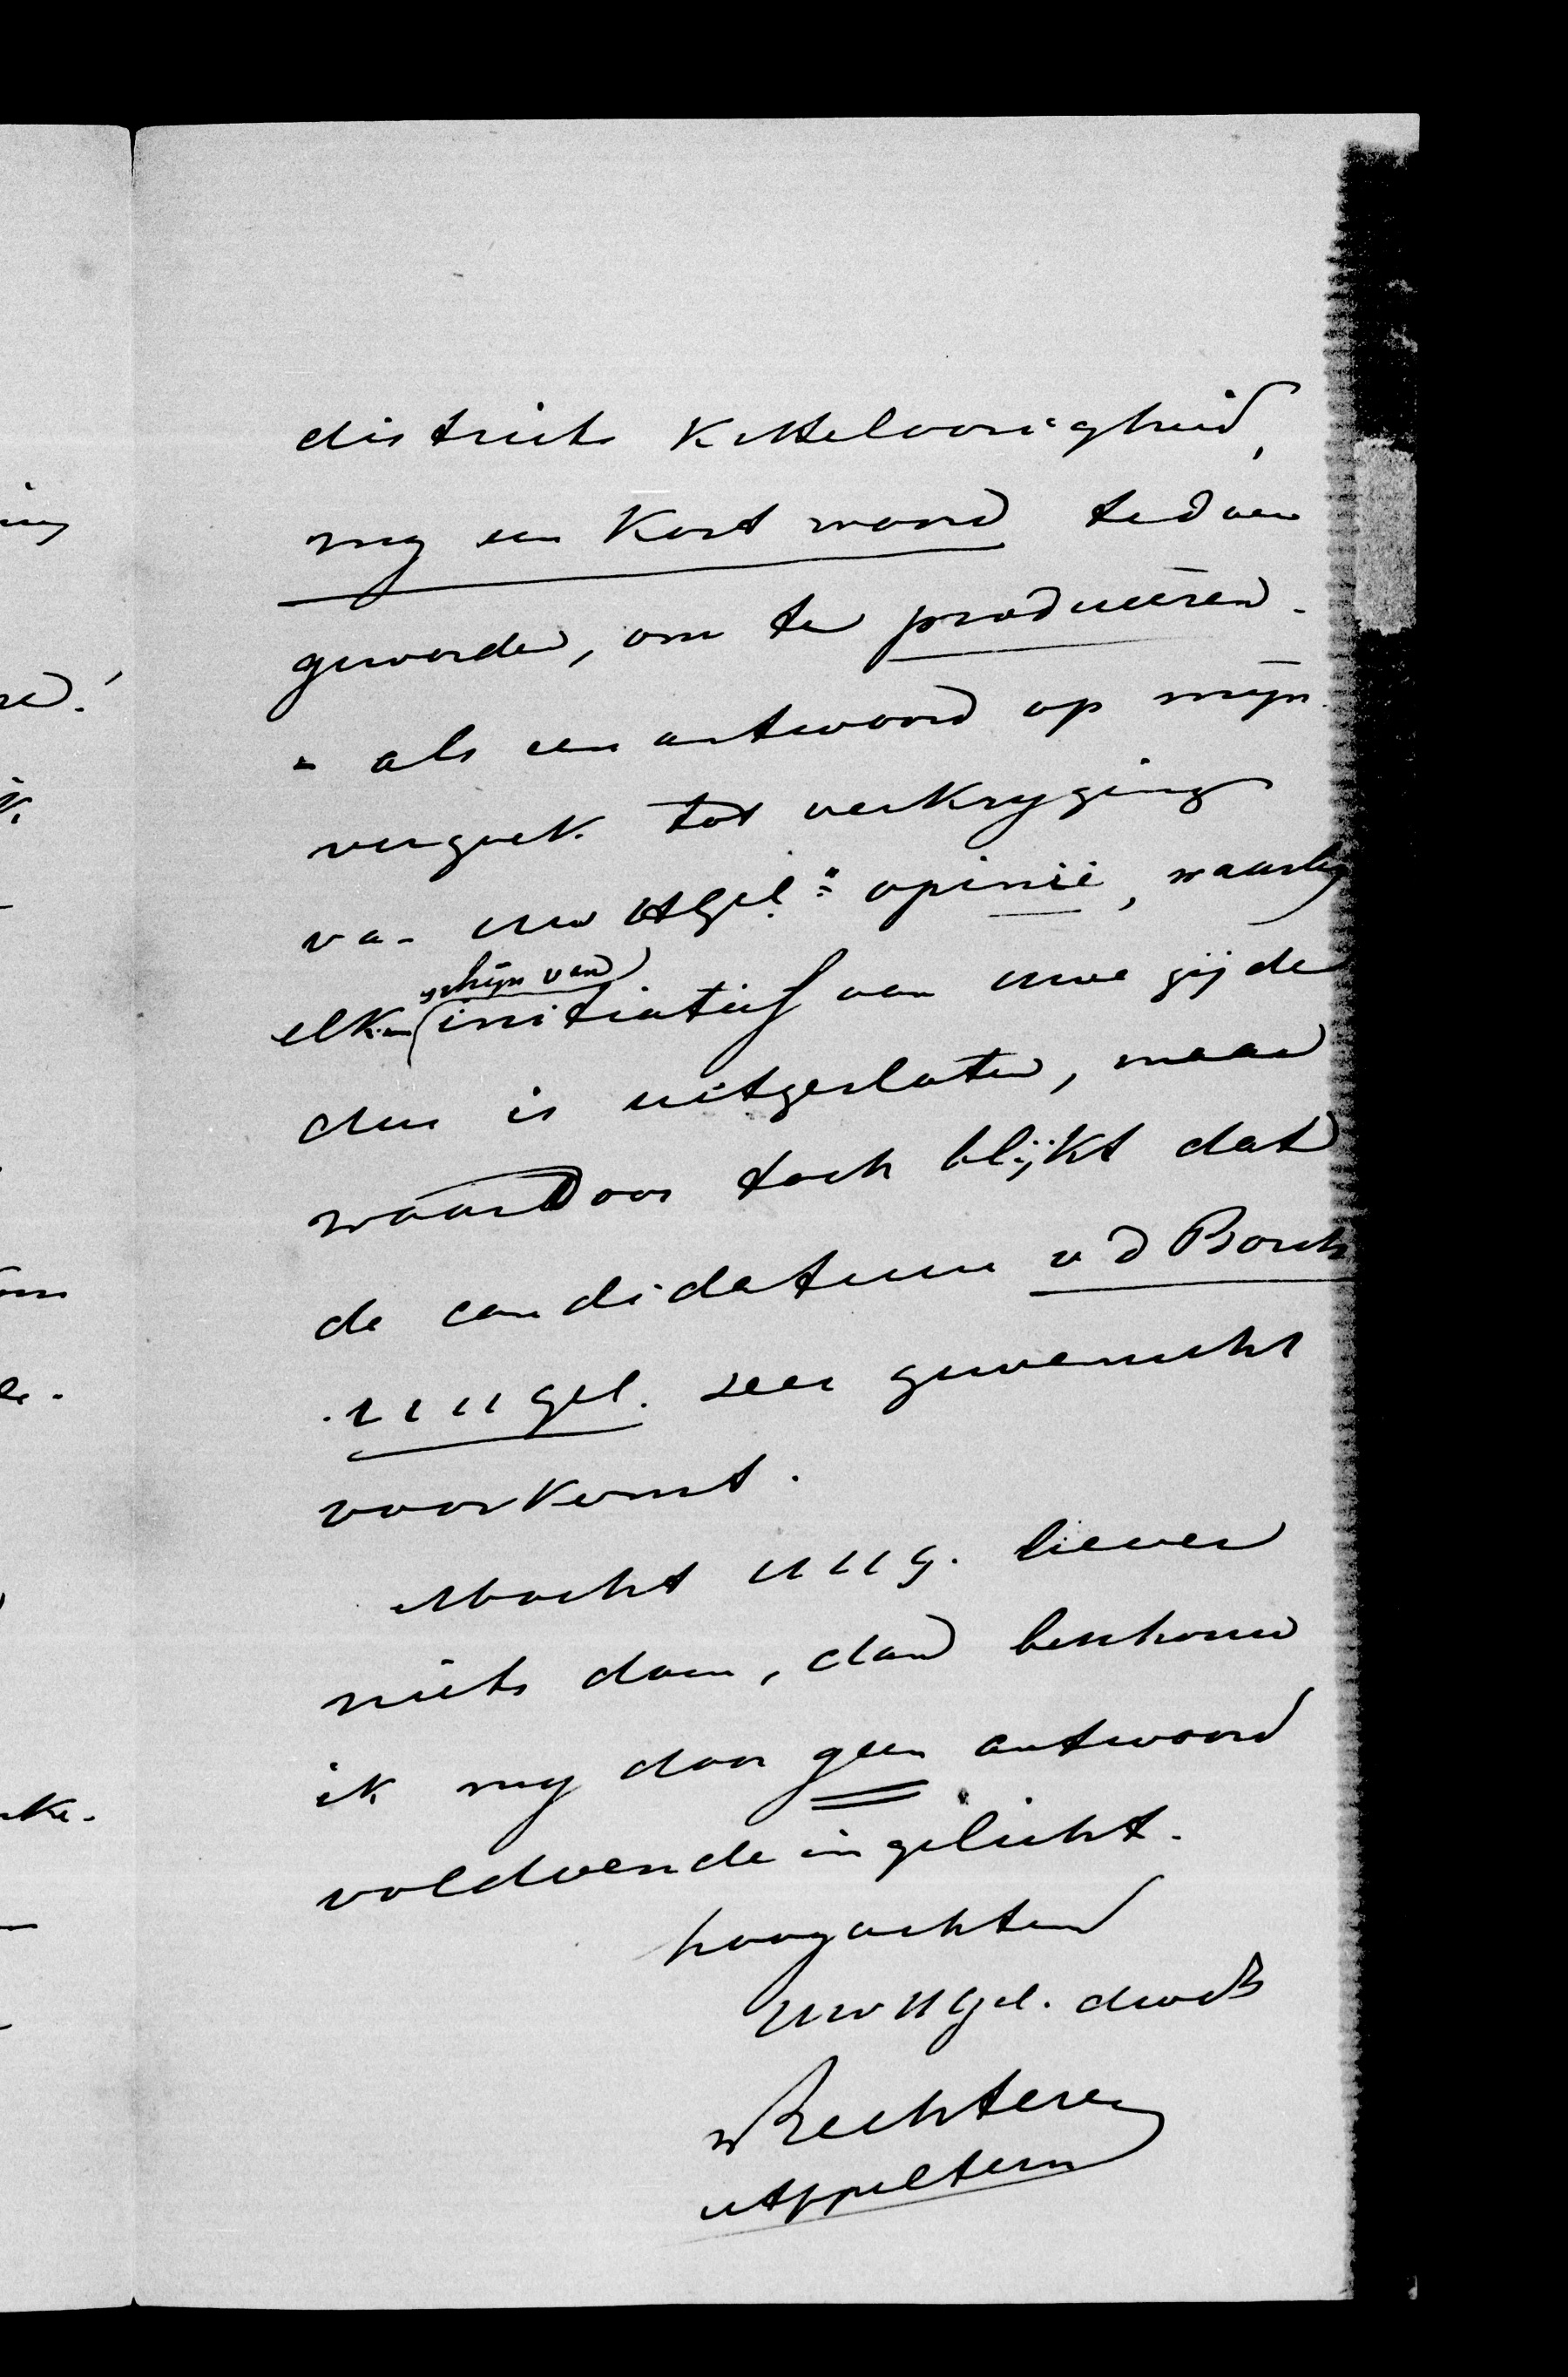 districts kitteloorigheid,
my een kort woord te doen
geworden, om te produceeren -
- als een antwoord op mijn
verzoek tot verkryging
van uw HGel.s opinie, waarby
elken schijn van initiatief van uwe zijde
dus is uitgesloten, maar
waardoor toch blijkt dat
de candidatuur v d Borch
UHGel. zeer gewenscht
voorkomt.
Mocht UHG. liever
niets doen, dan beschouw
ik my door geen antwoord
voldoende ingelicht.
hoogachtend
UwHGel. dw
Rechteren
Appeltern